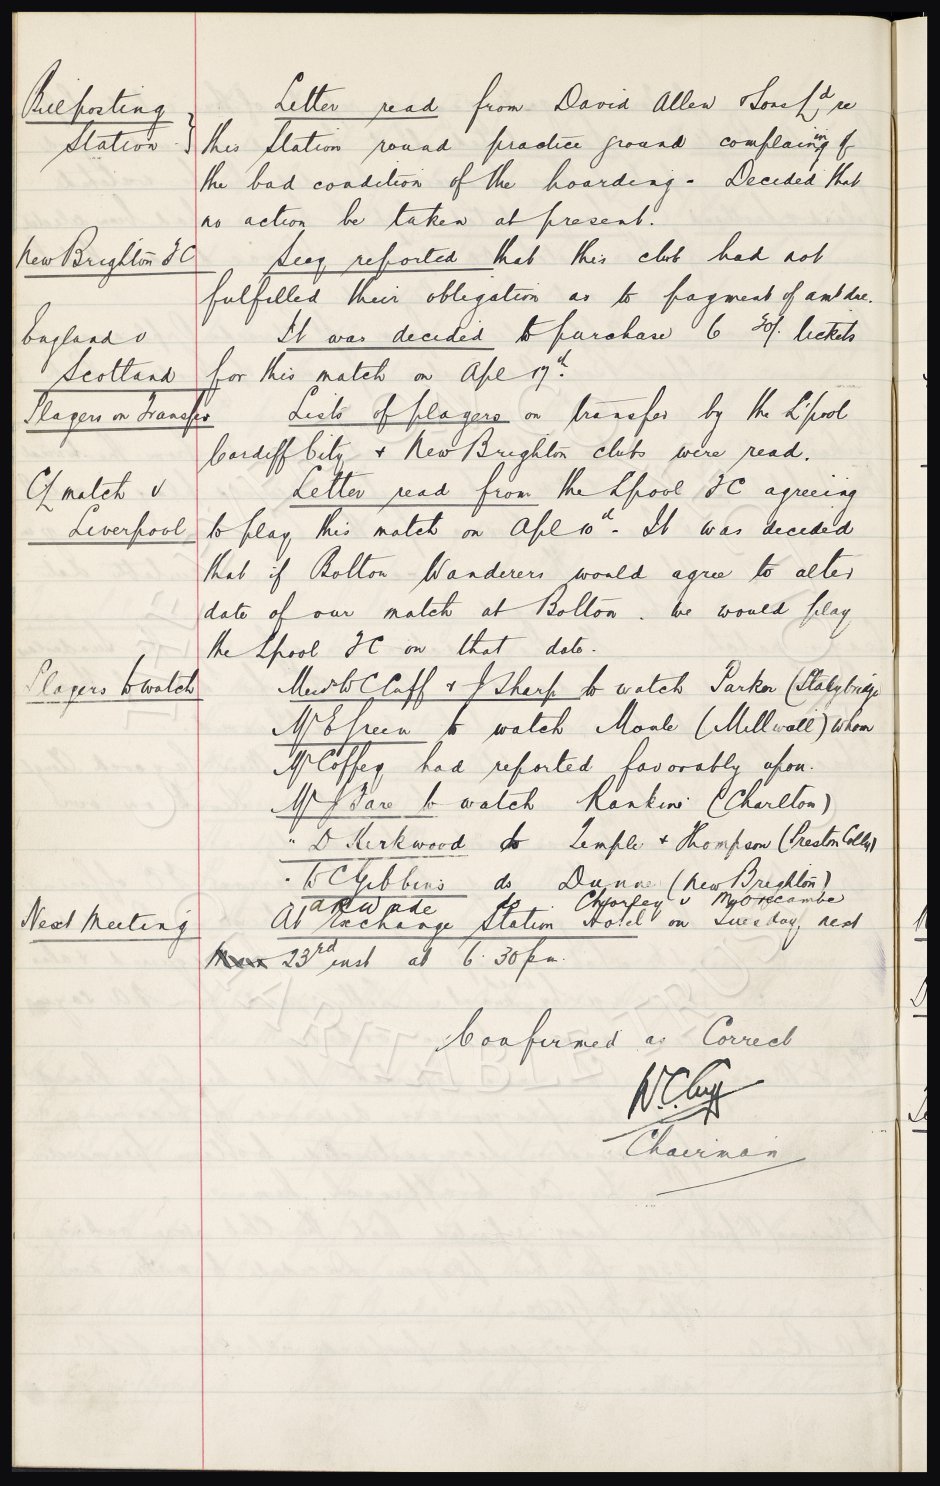 Billposting Letter read from David Allen & Sons Ld re
Station } this Station round practice ground complaining of
the bad condition of the hoarding - Decided that
no action be taken at present.
New Brighton FC Secy reported that this club had not
fulfilled their obligation as to payment of amt due.
England v It was decided to purchase 6 30/- tickets
Scotland for this match on Apl 17th.
Players on Transfer Lists of players on transfer by the L'pool
Cardiff City & New Brighton clubs were read.
CL match v Letter read from the Lpool FC agreeing
Liverpool to play this match on Apl 10th - It was decided
that if Bolton Wanderers would agree to alter
date of our match at Bolton . we would play
the Lpool FC on that date.
Players to watch Messrs W C Cuff & J Sharp to watch Parker (Stalybridge
Mr E Green to watch Moule (Millwall) whom
Mr Coffey had reported favorably upon.
Mr J Fare to watch Rankin (Charlton)
" D Kirkwood do Temple & Thompson (Preston Colly)
" W C Gibbins do Dunne (New Brighton)
A R Wade do Chorley v Morecambe
Next Meeting At Exchange Station Hotel on Tuesday next
23rd inst at 6.30 pm.
Confirmed as Correct
W.C. Cuff
Chairman